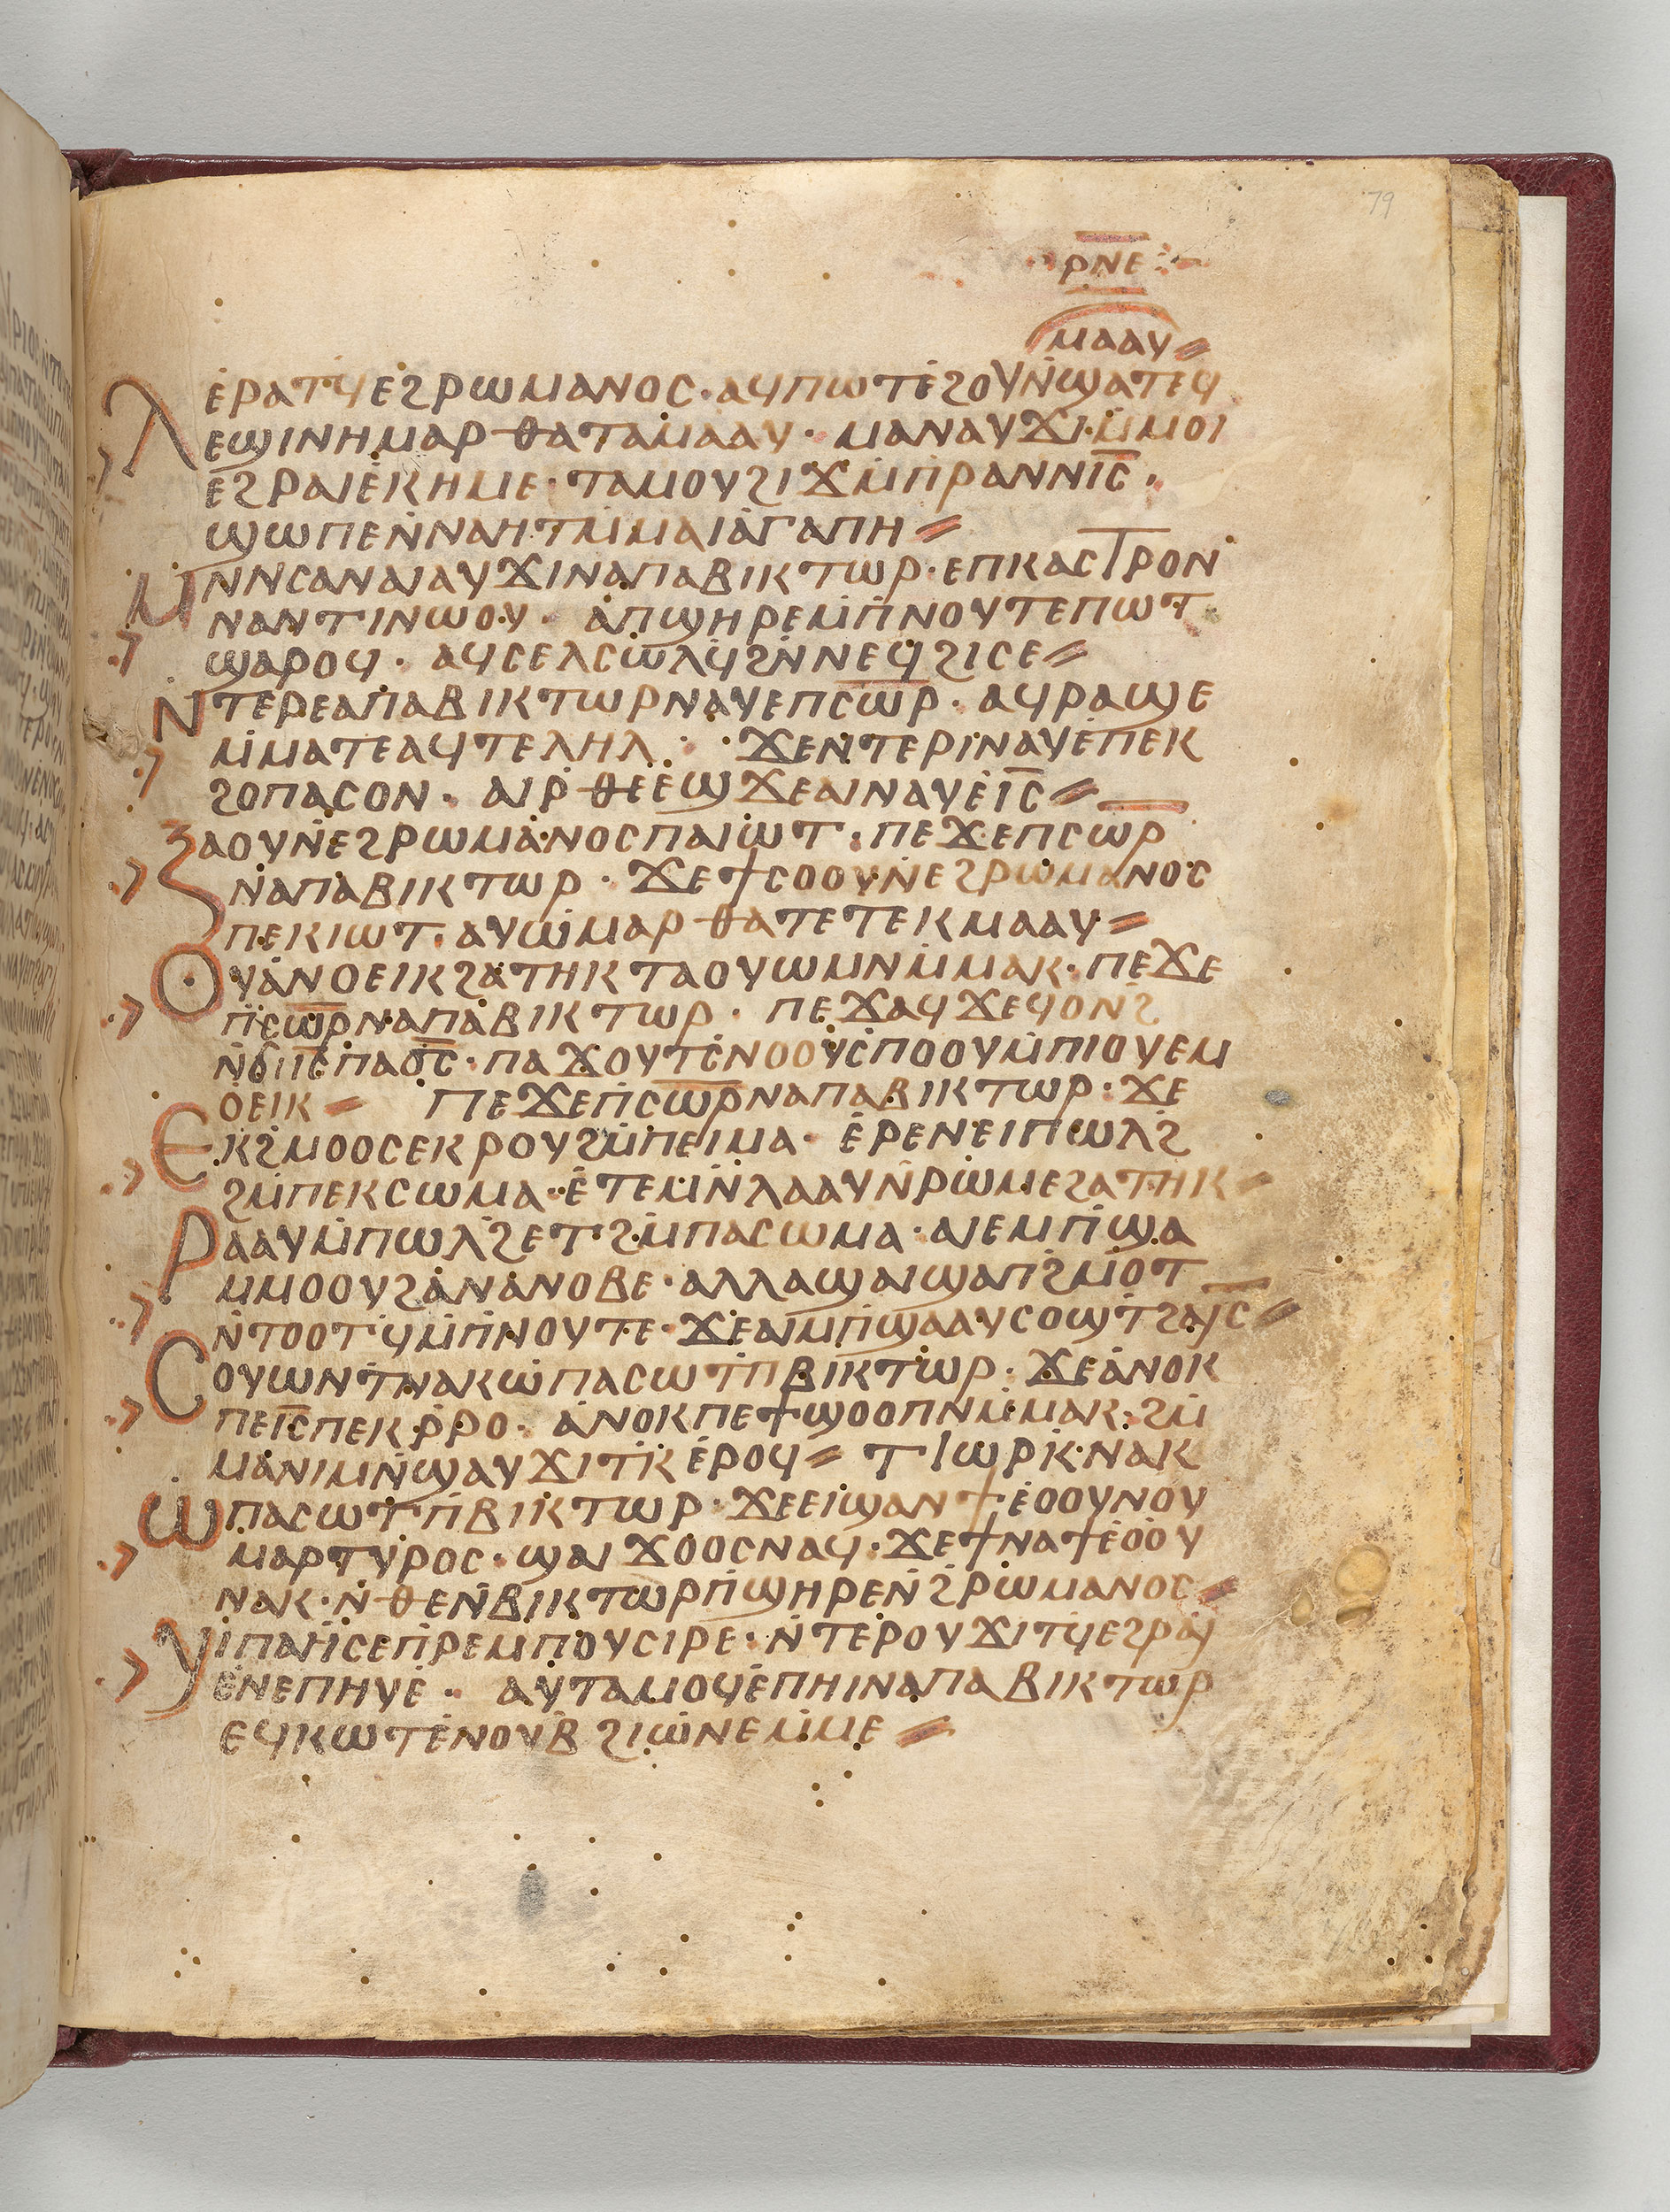 79
ⲣⲛⲉ
ⲙⲁⲁⲩ
ⲗⲉⲣⲁⲧϥⲉϩⲣⲱⲙⲁⲛⲟⲥ· ⲁϥⲡⲱⲧⲉϩⲟⲩⲛ̇ϣⲁⲧⲉϥ
ⲉϣⲓⲛⲏⲙⲁⲣⲑⲁⲧⲁⲙⲁⲁⲩ· ⲙⲁⲛⲁⲩϫⲓⲙ̇ⲙⲟⲓ
ⲉϩⲣⲁⲓⲉⲕⲏⲙⲉ· ⲧⲁⲙⲟⲩϩⲓϫⲙ̇ⲡ̇ⲣⲁⲛⲛⲓ̅ⲥ̅·
ϣⲱⲡⲉⲛ̇ⲛⲁⲏⲧⲙ̇ⲙⲁⲓⲁⲅⲁⲡⲏ⸗
ⲙⲛⲛⲥⲁⲛⲁⲓⲁⲩϫⲓⲛⲁⲡⲁⲃⲓⲕⲧⲱⲣ· ⲉⲡⲕⲁⲥⲧⲣⲟⲛ
ⲛⲁⲛⲧⲓⲛⲱⲟⲩ· ⲁⲡϣⲏⲣⲉⲙ̇ⲡ̇ⲛⲟⲩⲧⲉⲡⲱⲧ
ϣⲁⲣⲟϥ· ⲁϥⲥⲉⲗⲥⲱⲗϥϩⲛ̇ⲛⲉϥϩⲓⲥⲉ⸗
ⲛⲧⲉⲣⲉⲁⲡⲁⲃⲓⲕⲧⲱⲣⲛⲁⲩⲉⲡⲥ̅ⲱ̅ⲣ̅· ⲁϥⲣⲁϣⲉ
ⲙ̇ⲙⲁⲧⲉⲁϥⲧⲉⲗⲏⲗ· ϫⲉⲛⲧⲉⲣⲓⲛⲁⲩⲉⲡⲉⲕ
ϩⲟⲡⲁⲥⲟⲛ· ⲁⲓⲣ̇ⲑⲉⲉϣϫⲉⲁⲓⲛⲁⲩⲉⲓ̅ⲥ̅⸗
ⲍⲁⲟⲩⲛ̇ⲉϩⲣⲱⲙⲁⲛⲟⲥⲡⲁⲓⲱⲧ· ⲡⲉϫⲉⲡⲥⲱ̅ⲣ̅
ⲛ̇ⲁⲡⲁⲃⲓⲕⲧⲱⲣ· ϫⲉϯⲥⲟⲟⲩⲛ̇ⲉϩⲣⲱⲙⲁⲛⲟⲥ
ⲡⲉⲕⲓⲱⲧ· ⲁⲩⲱⲙⲁⲣⲑⲁⲧⲉⲧⲉⲕⲙⲁⲁⲩ⸗
ⲟⲩⲁⲛⲟⲉⲓⲕϩⲁⲧⲏⲕⲧⲁⲟⲩⲱⲙⲛⲙ̇ⲙⲁⲕ· ⲡⲉϫⲉ
ⲡ̇ⲥⲱ̅ⲣ̅ⲛⲁⲡⲁⲃⲓⲕⲧⲱⲣ· ⲡⲉϫⲁϥϫⲉϥⲟⲛϩ̇
ⲛ̇ϭⲓⲓ̅ⲥ̅ⲡⲁⲟ̅ⲥ̅· ⲡⲁϫⲟⲩⲧⲥ̇ⲛⲟⲟⲩⲥ̇ⲡⲟⲟⲩⲙ̇ⲡⲓⲟⲩⲉⲙ
ⲟⲉⲓⲕ⸗ ⲡⲉϫⲉⲡ̇ⲥⲱ̅ⲣ̅ⲛⲁⲡⲁⲃⲓⲕⲧⲱⲣ· ϫⲉ
ⲉⲕϩ̇ⲙⲟⲟⲥⲉⲕⲣⲟⲩϩⲙ̇ⲡⲉⲓⲙⲁ· ⲉⲣⲉⲛⲉⲓⲡⲱⲗϩ̇
ϩⲙ̇ⲡⲉⲕⲥⲱⲙⲁ· ⲉⲧⲉⲙⲛ̇ⲗⲁⲁⲩⲛ̇ⲣⲱⲙⲉϩⲁⲧⲏⲕ⸗
ⲣⲁⲁⲩⲙ̇ⲡⲱⲗϩ̇ⲉⲧϩⲙ̇ⲡⲁⲥⲱⲙⲁ· ⲁⲓⲉⲙⲡ̇ϣⲁ
ⲙⲙⲟⲟⲩϩⲁⲛⲁⲛⲟⲃⲉ· ⲁⲗⲗⲁϣⲁⲓϣⲁⲡϩ̇ⲙⲟⲧ
ⲛ̇ⲧⲟⲟⲧϥⲙ̇ⲡ̇ⲛⲟⲩⲧⲉ· ϫⲉⲁⲓⲙⲡ̇ϣⲁⲁⲩⲥⲟϣⲧ̇ϩⲁⲓ̅ⲥ̅⸗
ⲥⲟⲩⲱⲛⲧ̇ⲛⲁⲕⲱⲡⲁⲥⲱⲧⲡ̇ⲃⲓⲕⲧⲱⲣ· ϫⲉⲁⲛⲟⲕ
ⲡⲉⲓ̅ⲥ̅ⲡⲉⲕⲣ̇ⲣⲟ· ⲁⲛⲟⲕⲡⲉϯϣⲟⲟⲡⲛⲙ̇ⲙⲁⲕ· ϩⲙ̇
ⲙⲁⲛⲓⲙⲛ̇ϣⲁⲩϫⲓⲧⲕ̇ⲉⲣⲟϥ⸗ ⲧⲓⲱⲣⲕ̇ⲛⲁⲕ
ⲱⲡⲁⲥⲱⲧⲡ̇ⲃⲓⲕⲧⲱⲣ· ϫⲉⲉⲓϣⲁⲛϯⲉⲟⲟⲩⲛⲟⲩ
ⲙⲁⲣⲧⲩⲣⲟⲥ· ϣⲁⲓϫⲟⲟⲥⲛⲁϥ· ϫⲉϯⲛⲁϯⲉⲟⲟⲩ
ⲛⲁⲕ· ⲛ̇ⲑⲉⲛ̇ⲃⲓⲕⲧⲱⲣⲡ̇ϣⲏⲣⲉⲛ̇ϩⲣⲱⲙⲁⲛⲟⲥ⸗
ⲩⲓⲡⲁⲏⲥⲉⲡ̇ⲣⲉⲙⲡⲟⲩⲥⲓⲣⲉ· ⲛ̇ⲧⲉⲣⲟⲩϫⲓⲧϥⲉϩⲣⲁⲓ
ⲉⲛⲉⲡⲏⲩⲉ· ⲁⲩⲧⲁⲙⲟϥⲉⲡⲏⲓⲛⲁⲡⲁⲃⲓⲕⲧⲱⲣ
ⲉϥⲕⲱⲧⲉⲛⲟⲩⲃϩⲓⲱⲛⲉⲙ̇ⲙⲉ⸗